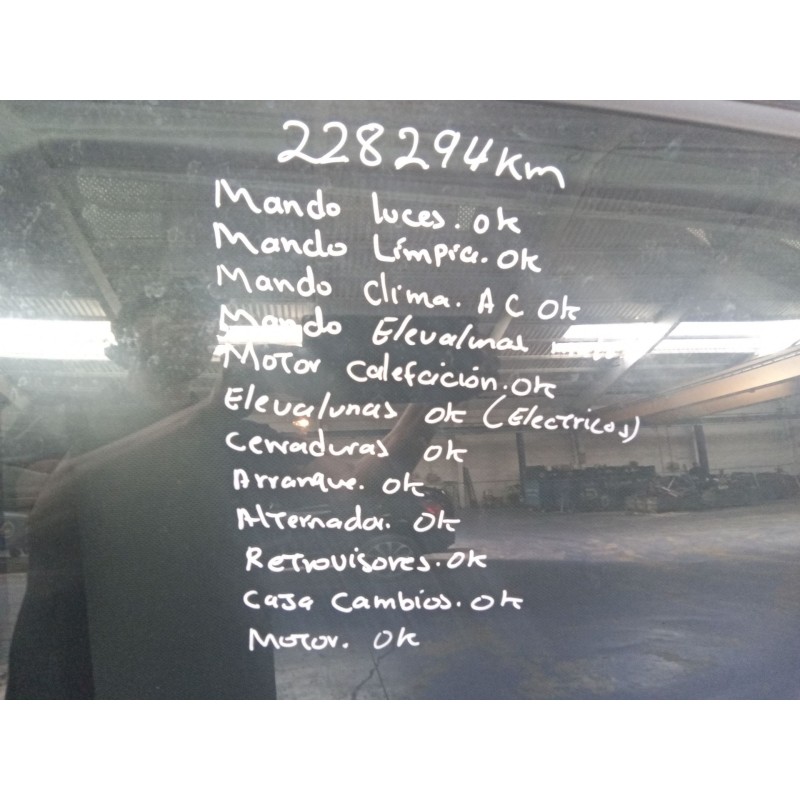 228294Km
Mando luces. ok
Mando Limpia. ok
Mando clima. AC ok
Mando Elevalunas
Motor Calefcición. ok
Elevalunas ok (Electricos)
Cerraduras ok
Arranque. ok
Alternador. ok
Retrovisores. ok
Caja Cambios. ok
Motor. ok